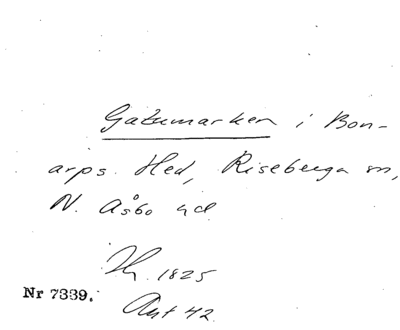 Gatumarken i Bon-
arps Hed, Riseberga sn,
N. Åsbo hd
1825
Nr 7339.
Ant 42